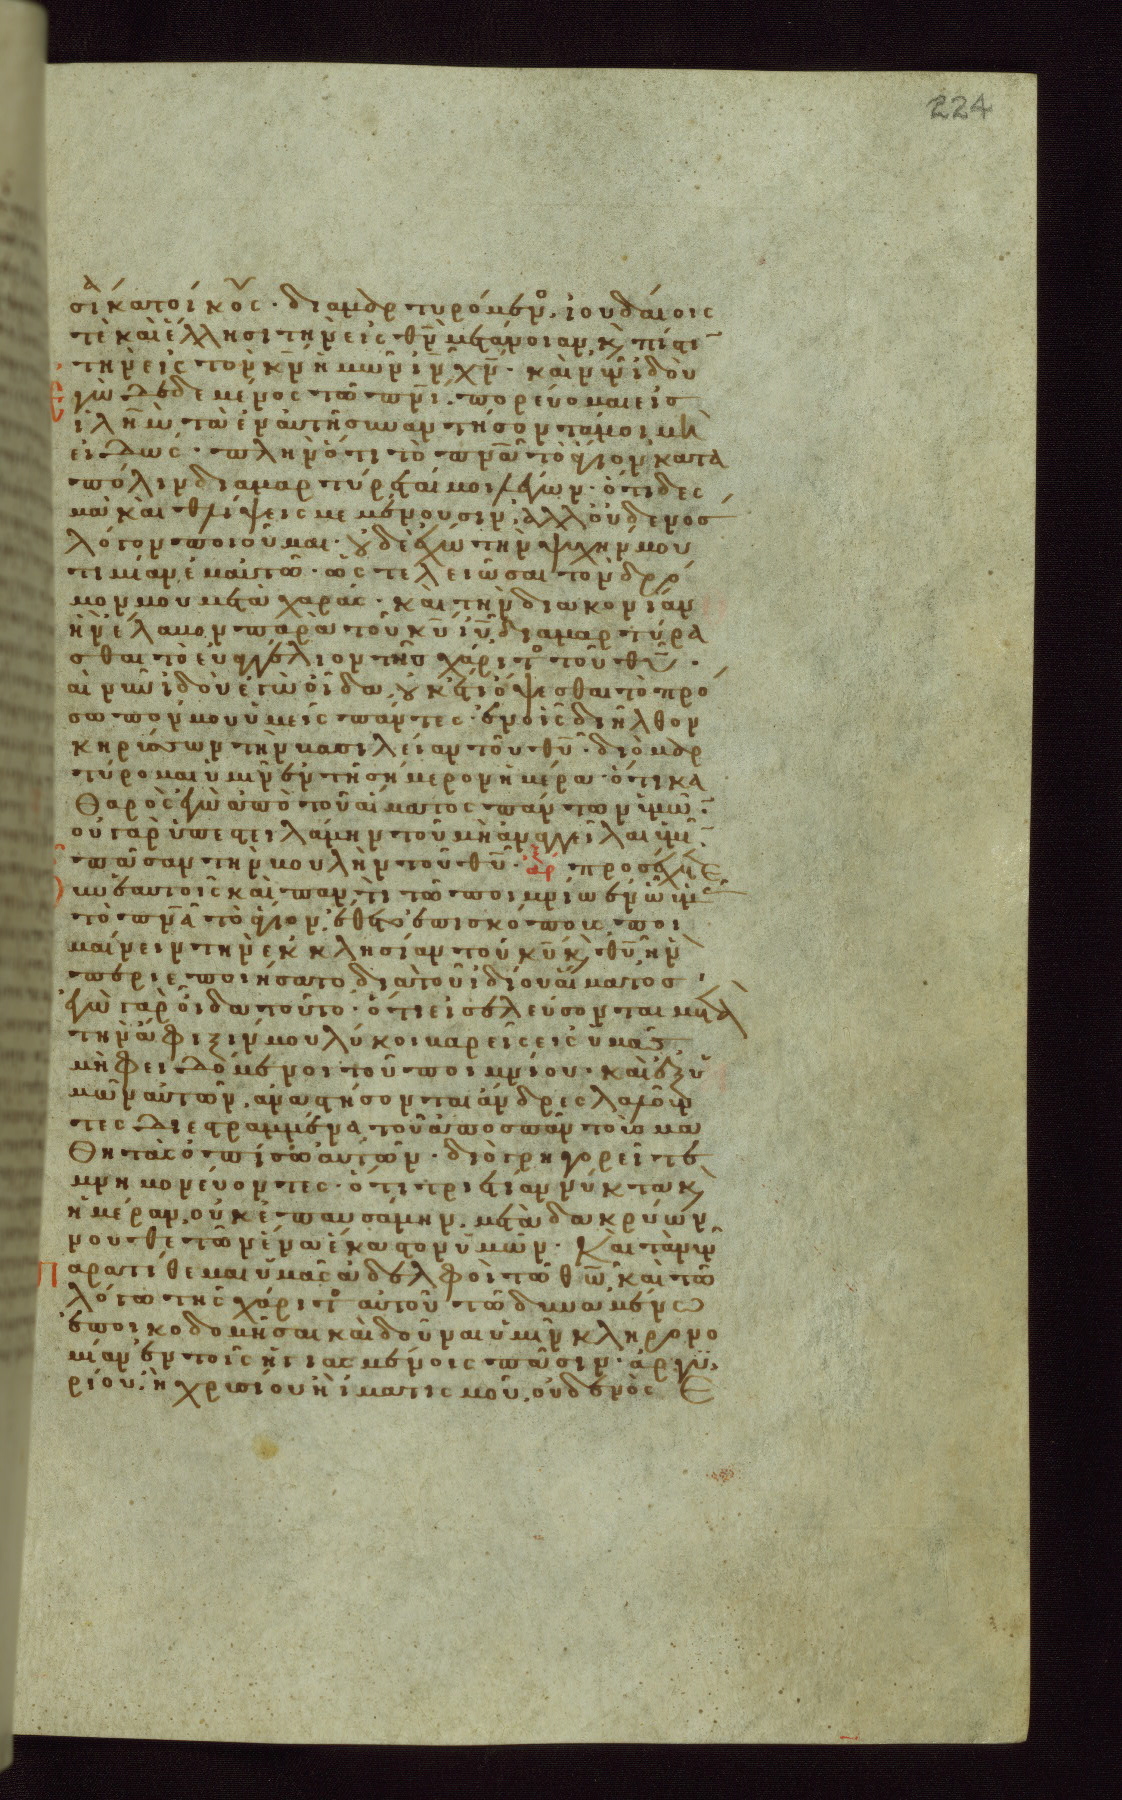 224
σίᾳ καὶ κατ' οἴκους· διαμαρτυρόμενος, ἰουδαίοις
τὲ καὶ ἕλλησι τὴν εἰς θν̄ μετάνοιαν κ̀ πίστιν
τὴν εἰς τὸν κν̄ ἡμῶν ιν̄ χν̄· καὶ νῦν ἰδοὺ
ἐγὼ δεδεμένος τῶ πνι̅, πορεύομαι εἰς
ιλη̄μ τὰ ἐν αὐτῆ συναντήσοντά μοι μὴ
εἰδώς· πλὴν ὅτι τὸ πνᾱ τὸ ἅγιον κατὰ
πόλιν διαμαρτύρεταί μοι λέγων· ὅτι δεσ
μὰ καὶ θλίψεις με μένουσιν, ἀλλ' οὐδενὸσ
λόγον ποιοῦμαι· οὐδὲ ἔχω τὴν ψυχήν μου
τιμίαν ἐμαυτῶ· ὡς τελειῶσαι τὸν δρό
μον μου μετὰ χαρᾶς· καὶ τὴν διακονίαν
ἣν ἔλαβον παρὰ τοῦ κυ̅ ιυ̅, διαμαρτύρα
σθαι τὸ εὐαγγέλιον τῆς χάριτος τοῦ θυ̅·
καὶ νῦν ἰδοὺ ἐγὼ οἶδα, οὐκέτι ὄψεσθαι τὸ πρό
σωπόν μου ὑμεῖς πάντες· ἐν οἷς διῆλθον
κηρύσσων τὴν βασιλείαν τοῦ θυ̅· διὸ μαρ
τύρομαι ὑμῖν ἐν τῆ σήμερον ἡμέρα ὅτι κα
θαρὸς ἐγὼ ἀπὸ τοῦ αἵματος πάντων ὑμῶν·
οὐ γὰρ ὑπεστειλάμην τοῦ μὴ ἀναγγεῖλαι ὑμῖν
πᾶσαν τὴν βουλὴν τοῦ θυ̅· ἀρ προσέχετε
οὖν ἑαυτοῖς καὶ παντὶ τῶ ποιμνίω ἐν ὧ ὑμᾶς
τὸ πνᾱ τὸ ἅγιον, ἔθετο ἐπισκόπους ποι
μαίνειν τὴν ἐκκλησίαν τοῦ κυ̅ κ̀ θυ̅, ἣν
περιεποιήσατο διὰ τοῦ ἰδίου αἵματος·
ἐγὼ γὰρ οἶδα τοῦτο· ὅτι εἰσελεύσονται μετὰ
τὴν ἄφιξίν μου λύκοι βαρεῖς εἰς ὑμᾶς
μὴ φειδόμενοι τοῦ ποιμνίου· καὶ ἐξ ὑ
μῶν αὐτῶν, ἀναστήσονται ἄνδρες λαλοῦν
τες διεστραμμένα τοῦ ἀποσπᾶν τοὺς μα
θητὰς ὀπίσω αὐτῶν· διὸ γρηγορεῖτε
μνημονεύοντες· ὅτι τριετίαν νύκτα κ̀
ἡμέραν, οὐκ ἐπαυσάμην, μετὰ δακρύων,
νουθετῶν ἕνα ἕκαστον ὑμῶν· καὶ τὰ νῦν
παρατίθεμαι ὑμᾶς ἀδελφοὶ τῶ θω̅ καὶ τῶ
λόγω τῆς χάριτος αὐτοῦ τῶ δυναμένω
ἐποικοδομῆσαι καὶ δοῦναι ὑμῖν κληρονο
μίαν ἐν τοῖς ἡγιασμένοις πᾶσιν· ἀργυ
ρίου, ἢ χρυσίου ἢ ἱματισμοῦ, οὐδενὸς ἐ